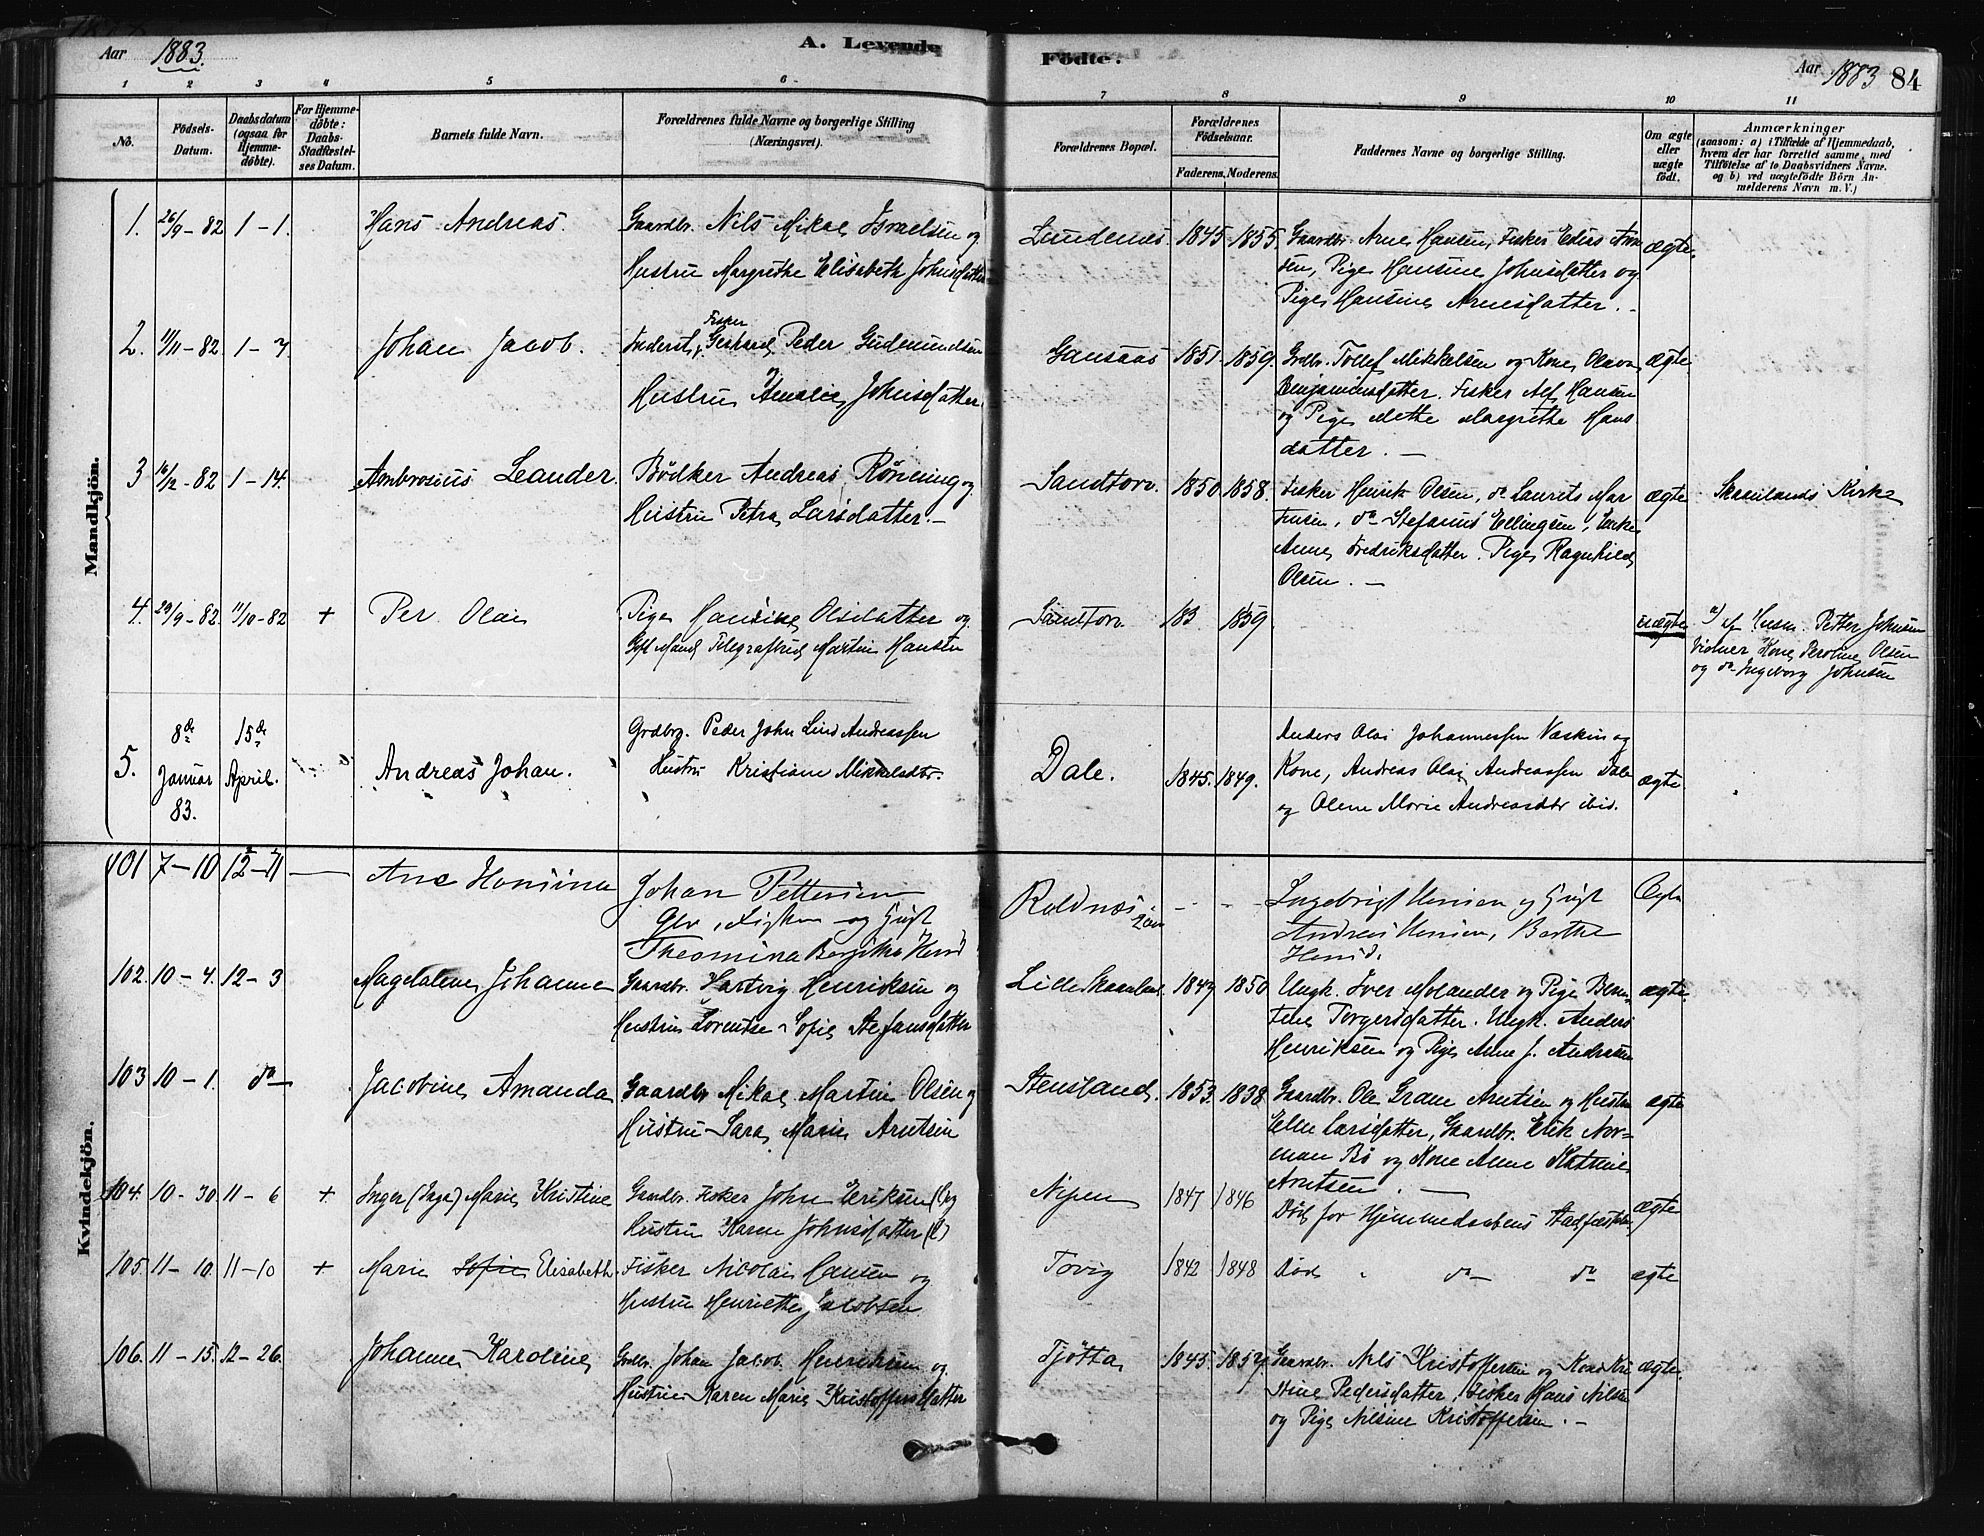 Aar 1883.
A. Levende Födte.
Aar 1883 84
1 2 3 4 5 6 7 8 9 10 11
No.
Födsels-Datum.
Daabsdatum (ogsaa for Hjemme-döbte).
For Hjemme-döbte: Daabs-Stadfæstel-ses Datum.
Barnets fulde Navn.
Forældrenes fulde Navne og borgerlige Stilling (Næringsvei).
Forældrenes Bopæl.
Forældrenes Födselsaar.
Faderens. Moderens.
Faddernes Navne og borgerlige Stilling.
Om ægte eller uægte födt.
Anmærkninger
(saasom: a) i Tilfælde af Hjemmedaab, hvem der har forrettet samme, med Tilföielse af to Daabsvidners Navne. og b) ved uægtefödte Börn An-melderens Navn m. V.)
Mandkjön.
1. 26/9-82 1-1. Hans Andreas. Gaardbr. Nils Mikal Israelsen og
Hustru Margrethe Elisabeth Johnsdatter
Sundenes 1845 1855. Gaardbr. Arne Hansen, Fisker
sen, Pige Hansine Johnsdatter og
Pige Hansine Arnesdatter. ægte.
2. 11/11-82. 1-7. Johan Jacob. Inderst, Fisker Peder Gudmundsen
Hustru Amalie Johnsdatter
Gausaas 1851. 1859. Grdbr. Tollef Mikkelsen og Kone Olava
Benjaminsdatter. Fisker Alf Hansen
og Pige Mette Margrethe Hans
datter. ægte
3 16/12-82 1-14. Ambrosius Leander. Bødker Andreas Rønning og
Hustru Petra Larsdatter.
Sandtorv. 1850. 1858. Fisker Henrik Olsen, do Laurits Mar
tinsen, do Stefanus Ellingsen, Enke
Anne Fredriksdatter. Pige Ragnhild
Olsen. ægte Skaanlands Kirke
4. 29/9-82. 11/10-82 + Per Olai Pige Hansine Olsdatter og
Gift Mand Martin Hansen
Sandtorv 183 1859 uægte a) af Husm. Petter Johnsen
Vidner Kone Peroline Olsen
og do Ingeborg Johnsen
5. 8de Januar 83. 15de April. Andreas Johan. Grdbrg. Peder John Lind Andreassen
Hustru Kristiane Mikkelsdtr.
Dale. 1845. 1849. Anders Olai Johannessen Vaskin og
Kone, Andreas Olai Andreassen Dale
og Olene Marie Andreasdtr ibid. ægte
Kvindekjön.
101 7-10 12-11 Ane Hansina Johan Pettersen
og Gift
Theomina Bergitha
Roldnæs - - Ingebrigt Hansen og Gift
Andreas Hansen, Berthe
102. 10-4. 12-3 Magdalene Johanne Gaardbr. Hartvig Henriksen og
Hustru Lorentse Sofie Stefansdatter
Lille Skaanland 1849 1850. Ungk. Iver Molander og Pige Bern-
tine Torgersdatter. Ungk. Anders
Henriksen og Pige Anne J. Andreasen ægte.
103 10-1. do Jacobine Amanda Gaardbr Mikal Martin Olsen og
Hustru Sara Marie Arntsen
Stensland. 1853. 1838. Gaardbr. Ole Grane Arntsen og Hustru
Ellen Larsdatter, Gaardbr. Erik Nor-
man Bø og Kone Anne Katrine
Arntsen. ægte
104. 10-30. 11-6 + Inger (Inga) Marie Kristine Gaardbr. Fisker John Eriksen (L) og
Hustru Karen Johnsdatter (L)
Nipen 1847 1846 Død før Hjemmedaabens Stadfæstelse. ægte
105. 11-10. 11-10 + Marie Sofie Elisabeth. Fisker Nicolai Hansen og
Hustru Henriette Jacobsen
Tovig 1842 1848 Død do do ægte
106. 11-15. 12-26. Johanne Karoline Grdbr. Johan Jacob Henriksen og
Hustru Karen Marie Kristoffersdatter
Fjøtta 1845. 1857. Gaardbr. Nils Kristoffersen og Kone Kri
stine Pedersdatter, Fisker Hans Nilsen
og Pige Nilsine Kristoffersen. ægte.